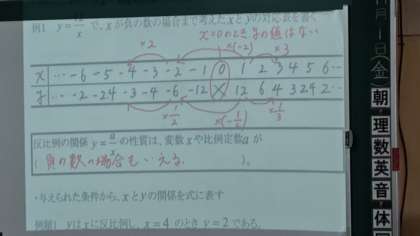 例1 y= 12/x で、xが負の数の場合まで考えたxとyの対応表を書く
x=0のときyの値はない
×2 ×(-2) ×3
x … -6 -5 -4 -3 -2 -1 0 1 2 3 4 5 6 …
y … -2 -2.4 -3 -4 -6 -12 × 12 6 4 3 2.4 2 …
×1/2 ×(-1/2) ×1/3
反比例の関係 y= a/x の性質は、変数xや比例定数aが
( 負の数の場合も、いえる )。
・与えられた条件から、xとyの関係を式に表す
例題1 yはxに反比例し、x=4のときy=2である。
月1日(金)
朝
理
数
英
音
体